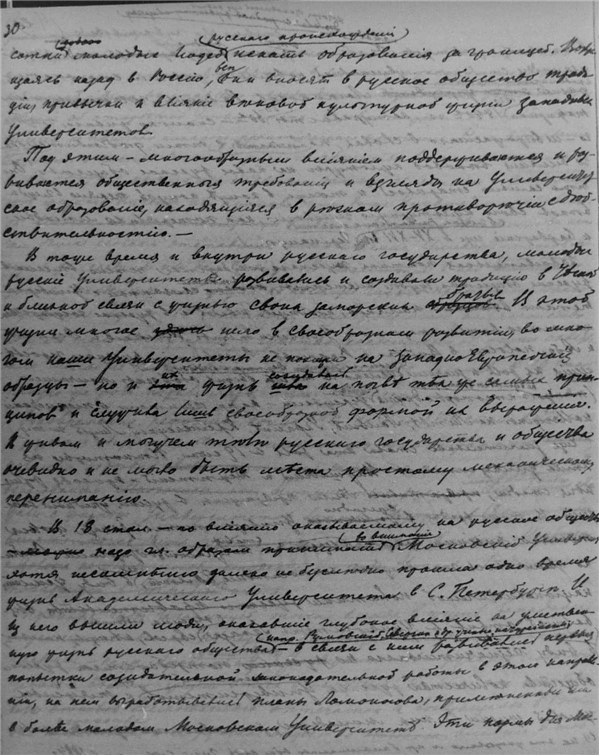 30
русского происхожденія
сотни молодыхъ людей искать образованія за границей. Возвра-
щаясь назад в Россію, они вносят в русское общество тради-
ціи, привычки и вѣянія вѣковой культурной жизни западных
Университетов.
Под этим – многообразным вліяніем поддерживаются и раз-
виваются общественныя требованія и взгляды на Университет-
ское образованіе, находящіяся в рѣзком противорѣчіи с дѣй-
ствительностью. –
В тоже время и внутри русскаго государства, молодые
русскіе Университеты развивались и создавали традицію в тѣсной
и близкой связи с жизнью своих заморских образцов. В этой
жизни многое шло в своеобразном развитіи, во мно-
гом наши Университеты не похожи на Западно-Европейскіе
образцы – но и их жизнь создавалась на почвѣ тѣх же самых прин-
ципов и служила лишь своеобразной формой их выраженія.
В живом и могучем тѣлѣ русскаго государства и общества
очевидно и не могло быть мѣста простому механическому
перениманію.
В 18 стол. – по вліянію оказываемому на русское общество
– надо гл. образом принимать во вниманіе Московскій Универс.,
хотя несомнѣнно далеко не безслѣдно прошла одно время
жизнь Академическаго Университета в С. Петербургѣ. И
из него вышли люди, оказавшіе глубокое вліяніе на умствен-
ную жизнь русскаго общества – в связи с ним развивались первыя
попытки созидательной законодательной работы в этом направле-
ніи, на нем вырабатывались планы Ломоносова, примѣненные им
в болѣе молодом Московском Университетѣ. Эти нормы для